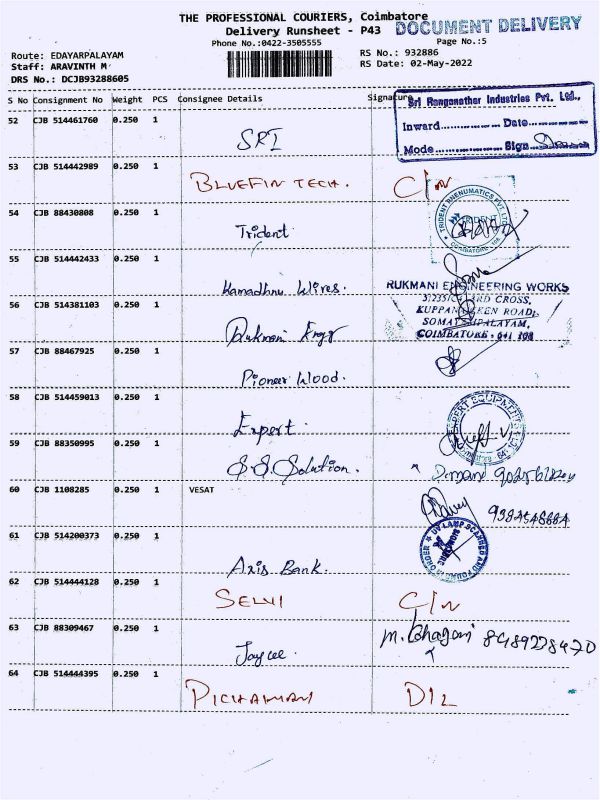 THE PROFESSIONAL COURIERS, Coimbatore
DOCUMENT DELIVERY
Delivery Runsheet - P43
Phone No.:0422-3505555
Page No.:5
Route: EDAYARPALAYAM
RS No.: 932886
Staff: ARAVINTH M
RS Date: 02-May-2022
DRS No.: DCJB93288605
S No Consignment No Weight PCS Consignee Details Signature
Sri Ranganathar Industries Pvt. Ltd.,
Inward............... Date...............
Mode............... Sign...............
52 CJB 514461760 0.250 1
SRI
53 CJB 514442989 0.250 1
BLUEFIN TECH. C/N
54 CJB 88430808 0.250 1
Trident
TRIDENT PNEUMATICS PVT LTD
TRIDENT
55 CJB 514442433 0.250 1
Kamadhnu Wires.
RUKMANI ENGINEERING WORKS
CROSS,
ROAD,
COIMBATORE - 641 108
56 CJB 514381103 0.250 1
Rukmani Engg
57 CJB 88467925 0.250 1
Pioneer Wood.
58 CJB 514459013 0.250 1
Expert
EXPERT EQUIPMENTS
59 CJB 88350995 0.250 1
S.S. Solution.
60 CJB 1108285 0.250 1 VESAT
61 CJB 514200373 0.250 1
Axis Bank.
UV LAMP SCANNED AND FOUND IN ORDER
62 CJB 514444128 0.250 1
SELVI C/N
63 CJB 88309467 0.250 1
Jaycee. 8489228420
64 CJB 514444395 0.250 1
PICHAMANI D/L